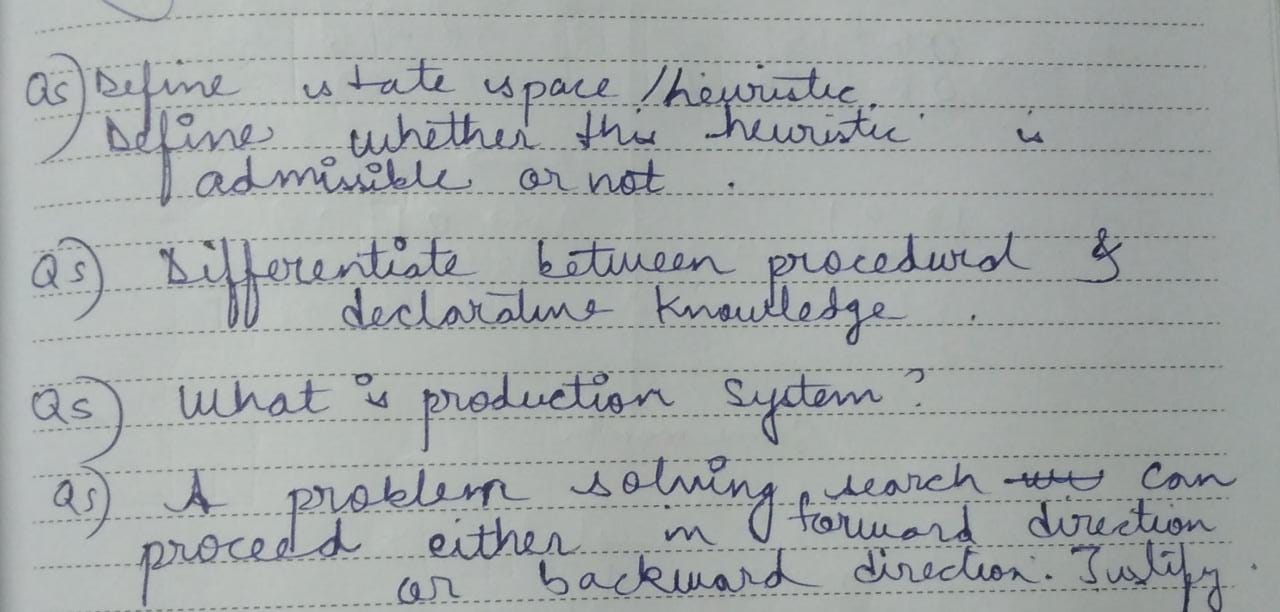 Qs) Define state space / heuristic.
Define whether this heuristic is
admissible or not .
Qs) Differentiate between procedural &
declarative knowledge .
Qs) What is production system ?
Qs) A problem solving search can
proceed either in forward direction
or backward direction. Justify.